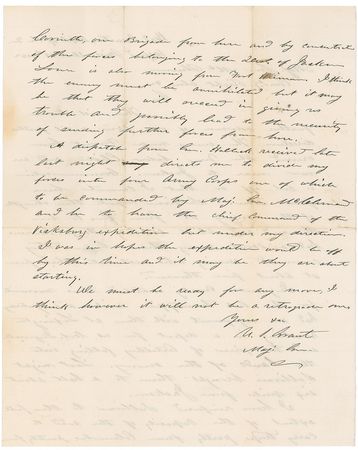 Corinth, one Brigade from here and by concentration
of the forces belonging to the Dist. of Jackson
Lowe is also moving from Fort Heiman. I think
the enemy must be annihilated but it may
be that they will succeed in giving us
trouble and possibly lead to the necessity
of sending further forces from here.
A dispatch from Gen. Halleck received late
last night directs me to divide my
forces into four Army Corps one of which
to be commanded by Maj. Gen. McClernand
and he to have the chief command of the
Vicksburg expedition but under my direction.
I was in hopes the expedition would be off
by this time and it may be they are about
starting.
We must be ready for any move. I
think however it will not be a retrograde one.
Yours &c
U. S. Grant
Maj. Gen.